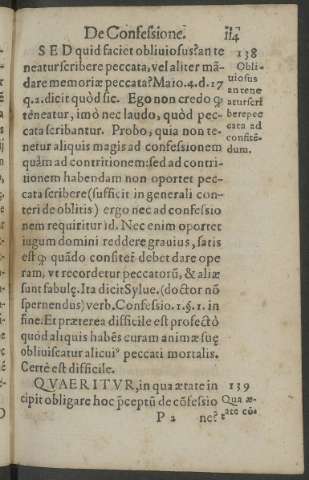 De Confessione.
114
SED quid faciet obliuiosus? an te
neatur scribere peccata, vel aliter mā-
dare memoriæ peccata? Maio. 4. d. 17
q. 2. dicit quòd sic. Ego non credo ꝙ
tẽneatur, imò nec laudo, quòd pec-
cata scribantur. Probo, quia non te-
netur aliquis magis ad confessionem
quàm ad contritionem: sed ad contri-
tionem habendam non oportet pec-
cata scribere (sufficit in generali con-
teri de oblitis) ergo nec ad confessio
nem requiritur id. Nec enim oportet
iugum domini reddere grauius, satis
est ꝙ quādo confiteť debet dare ope
ram, vt recordetur peccatorũ, & aliæ
sunt fabulę. Ita dicit Sylue. (doctor nō
spernendus) verb. Confessio. 1. §. 1. in
fine. Et præterea difficile est profectò
quòd aliquis habēs curam animæ suę
obliuiscatur alicuiꝰ peccati mortalis.
Certè est difficile.
QVAERITVR, in qua ætate in
cipit obligare hoc p̄ceptũ de cōfessio
P 2 ne?
138
Obli-
uiosus
an tene
atur scri
bere pec
cata ad
confitē-
dum.
139
Qua æ-
tate